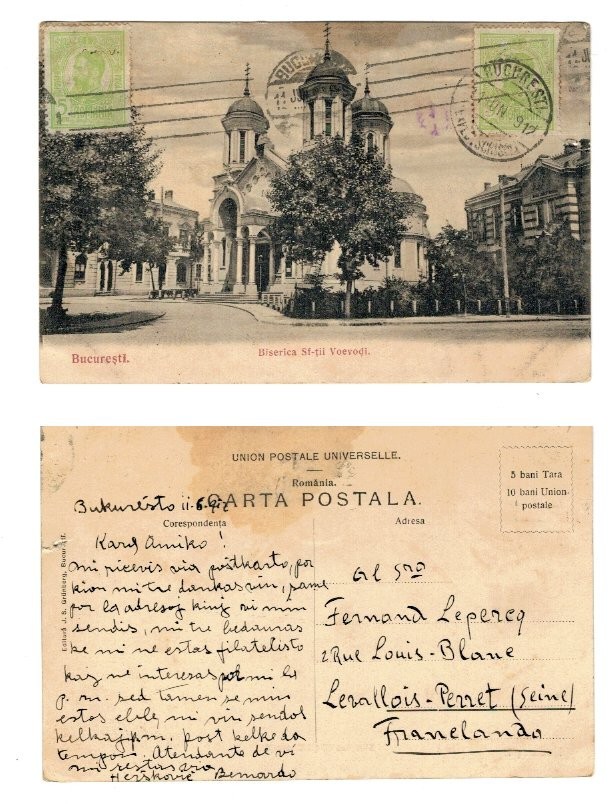 BUCUREȘTI
BUCUREȘTI
București.
Biserica Sf-ții Voevodi.
UNION POSTALE UNIVERSELLE.
România.
CARTA POSTALA.
5 bani Tară
10 bani Union
postale
Bukuresto 11.6.912
Corespondența
Adresa
Karel Amiko!
mi ricevis via postkarto, por
kion mi tre dankas vin, same
por la adresoj kiuj vi min
sendis, mi tre bedauras
ke mi ne estas filatelisto
kaj ne interesas mi la
p. m. sed tamen se min
estos eble, mi vin sendos
kelkaj pm. post kelkeda
tempo. Atendante de vi
mi restas
Herskovic Bernardo
Al Sro
Fernand Lepercq
2 Rue Louis-Blanc
Levallois-Perret (Seine)
Franclando
Editura J. S. Grünberg, București.